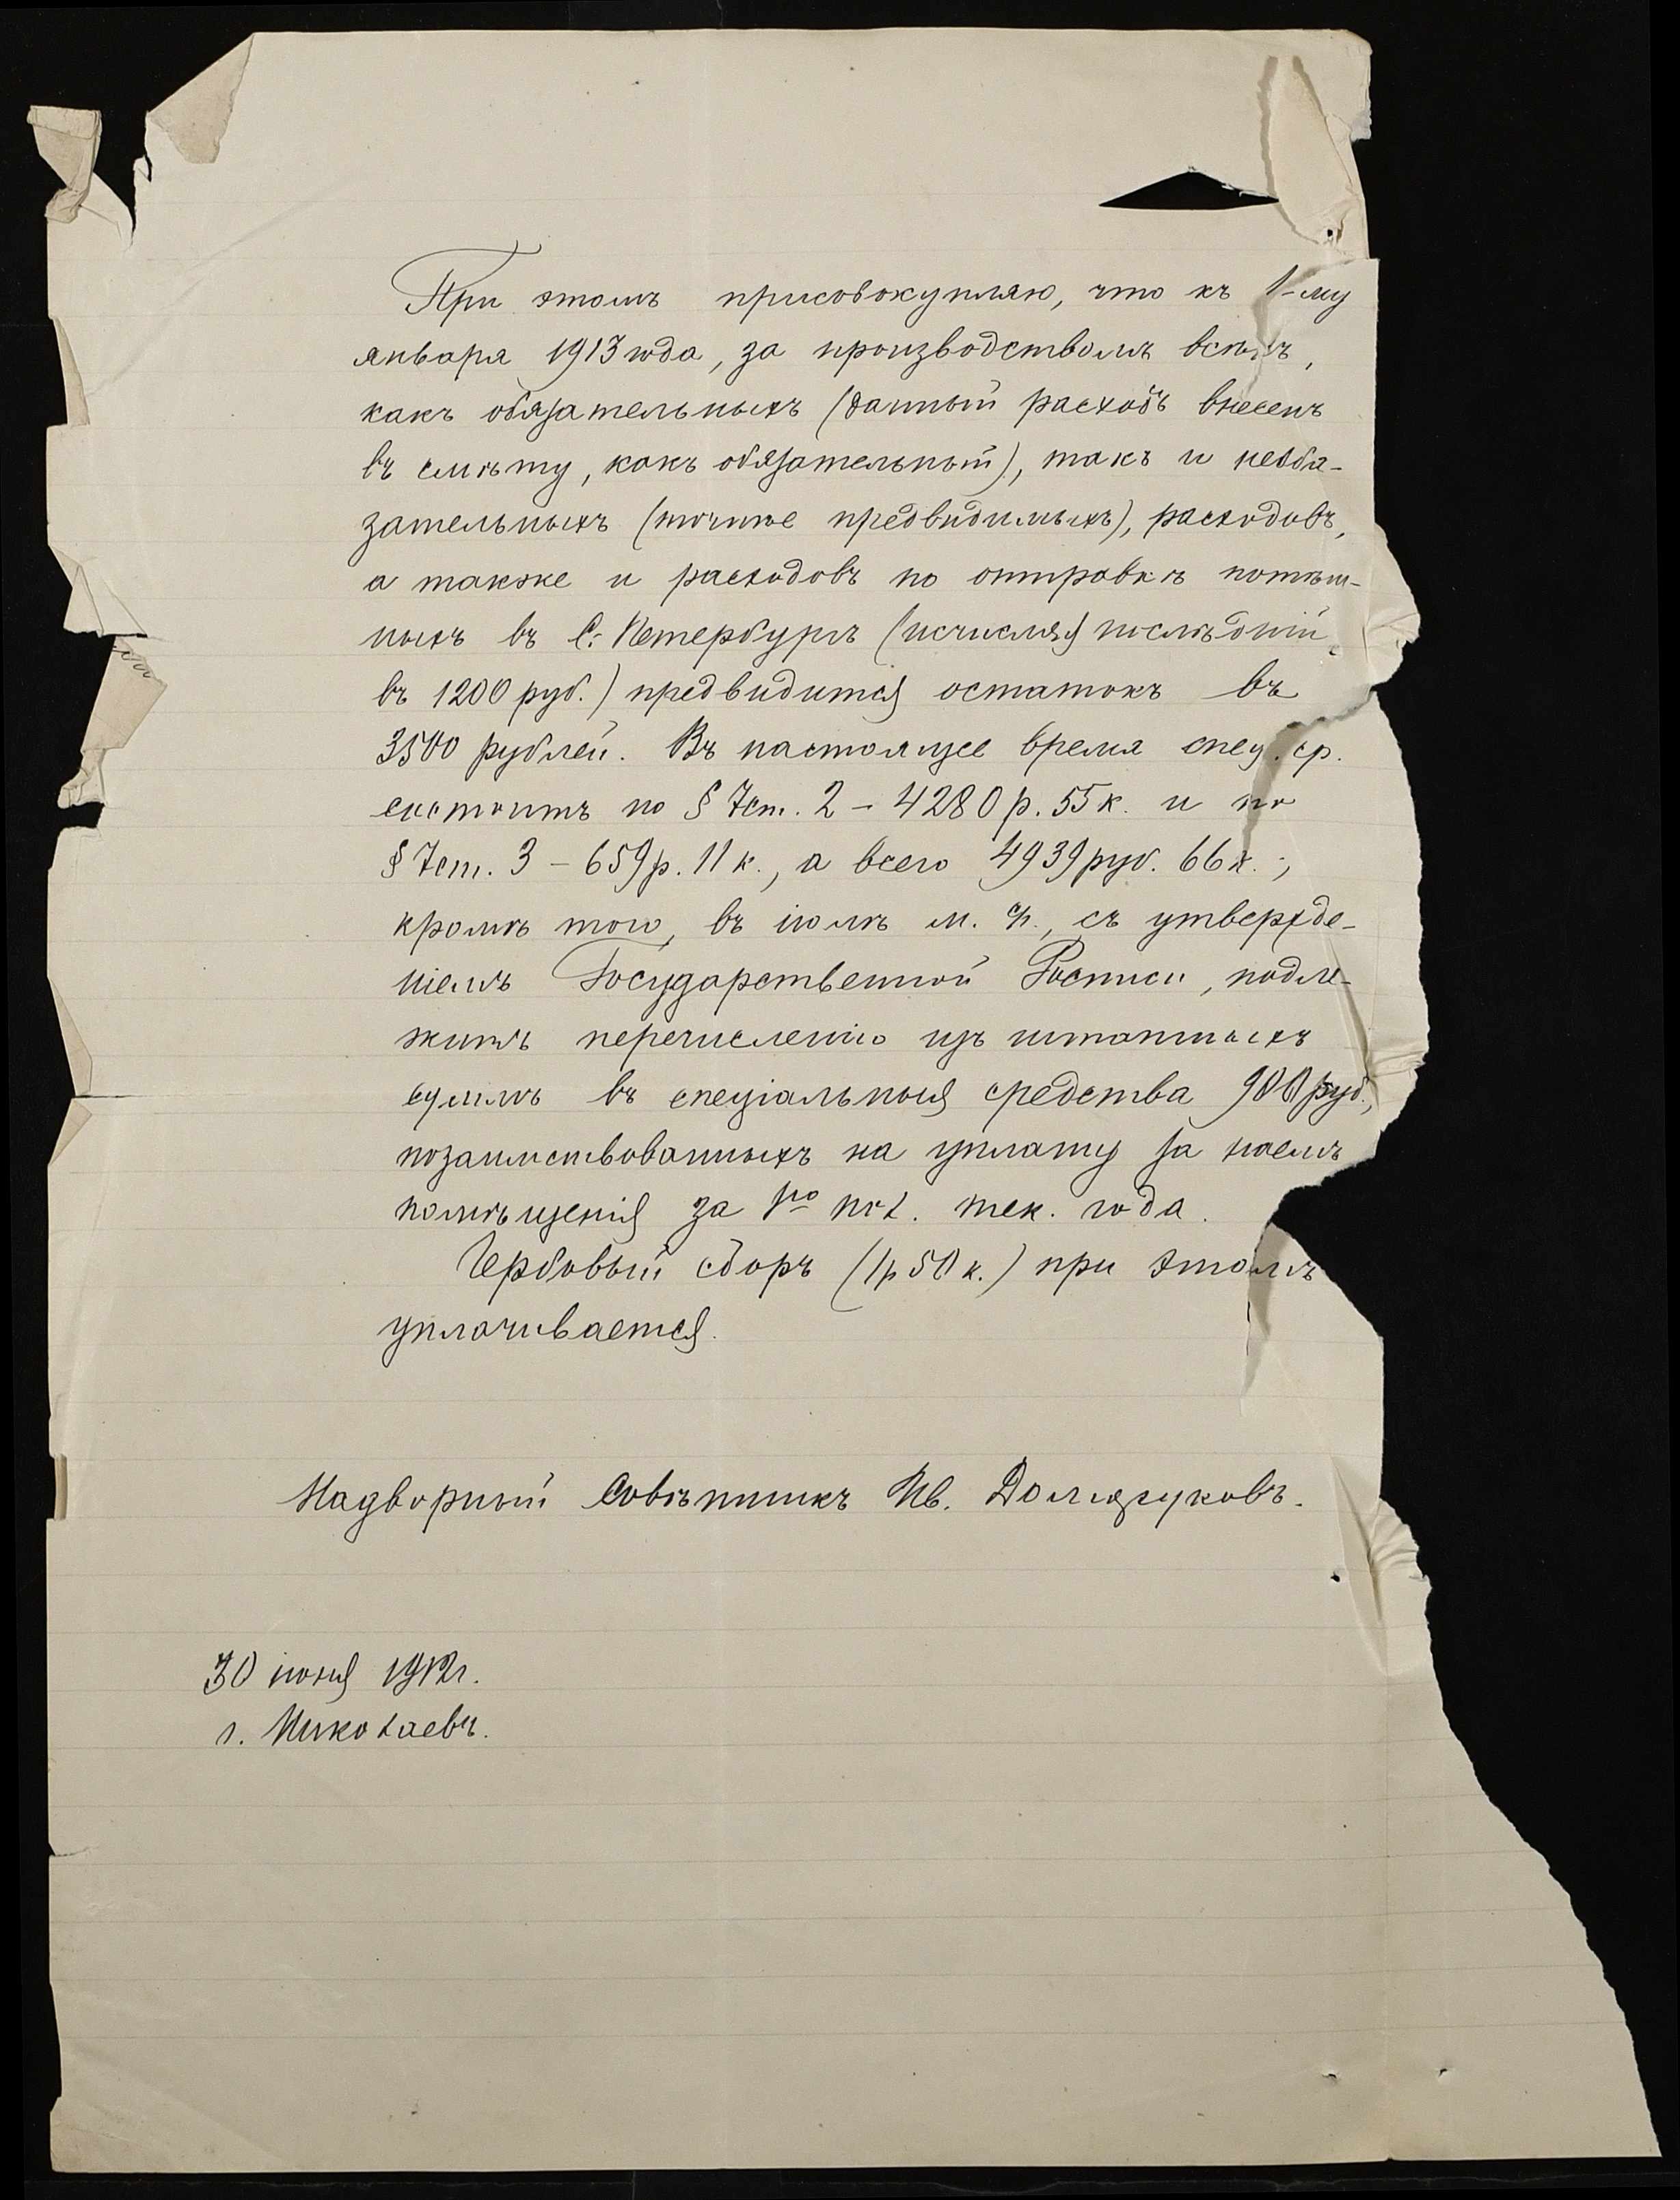 При этомъ присовокупляю, что къ 1-му
января 1913 года, за производствомъ всѣхъ,
какъ обязательныхъ (данный расходъ внесенъ
въ смѣту, какъ обязательный), такъ и необя-
зательныхъ (точнѣе предвидимыхъ), расходовъ,
а также и расходовъ по отправкѣ потѣш-
ныхъ въ С.-Петербургъ (исчисляя послѣдній
въ 1200 руб.) предвидится остатокъ въ
3500 рублей. Въ настоящее время спец. ср.
состоитъ по § 7 ст. 2 – 4280 р. 55 к. и по
§ 7 ст. 3 – 659 р. 11 к., а всего 4939 руб. 66 к.;
кромѣ того, въ іюлѣ м. с., съ утвержде-
ніемъ Государственной Росписи, подле-
житъ перечисленію изъ штатныхъ
суммъ въ спеціальныя средства 900 руб.,
позаимствованныхъ на уплату за наемъ
помѣщенія за 1-ю пол. тек. года.
Гербовый сборъ (1 р 50 к.) при этомъ
уплачивается.
Надворный Совѣтникъ Ив.
30 іюня 1912 г.
г. Николаевъ.